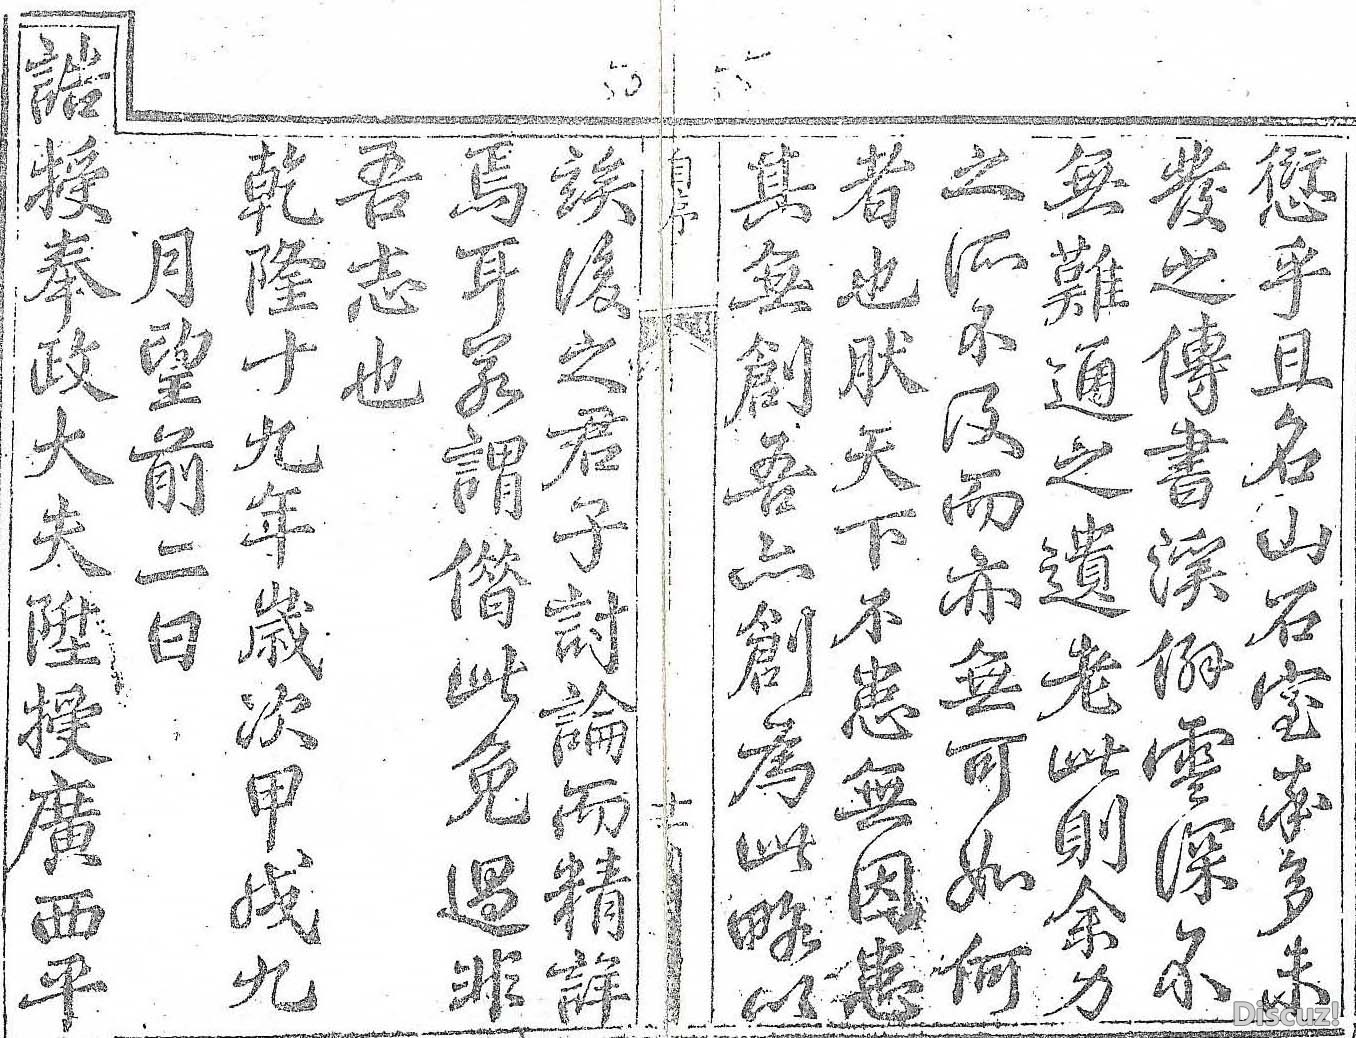 愆乎且名山石室秦多未
發之傳書溪僚雲深不
無難通之遺老此則余力
之所不及而亦無可如何
者也肰天下不患無因患
其無創吾亦創為此略以
自序
十
俟後之君子討論而精詳
焉耳若謂僭此免過非
吾志也
乾隆十九年歲次甲戌九
月望前二日
誥授奉政大夫陞授廣西平
50
55
Discuz!